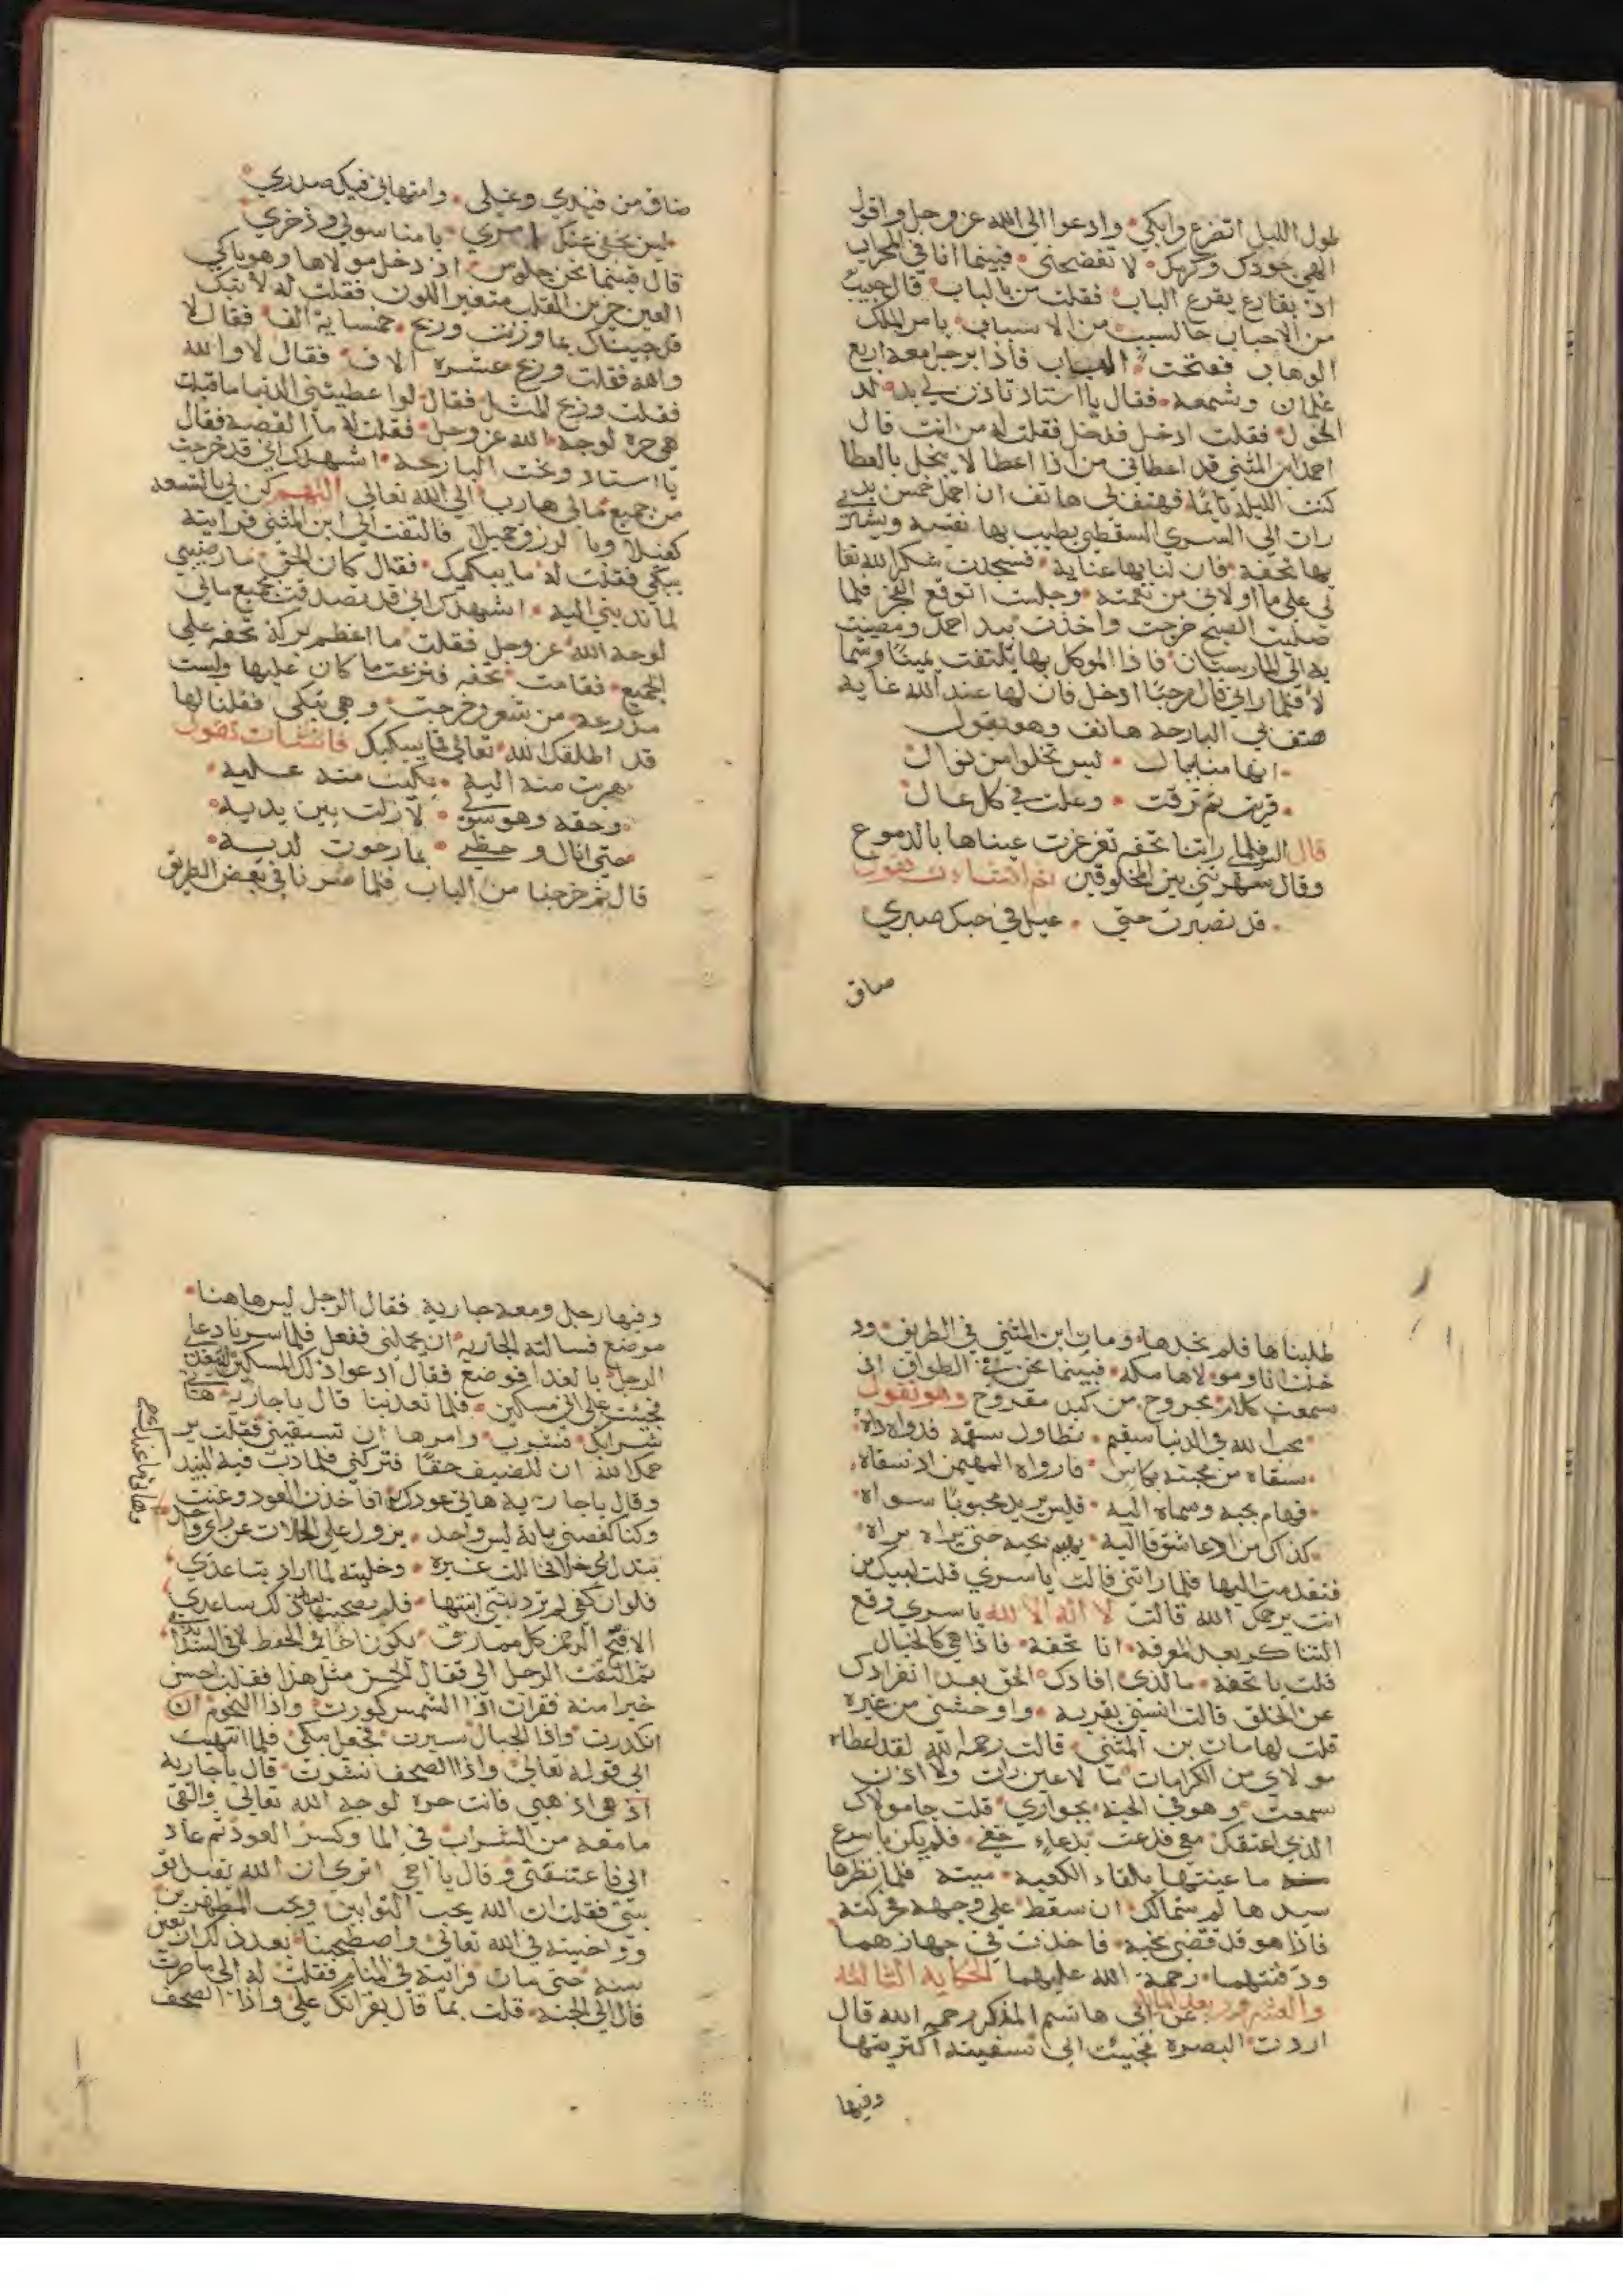 طول الليل اتضرع وابكي وادعوا الى الله عز وجل واقول
الهي جودك وكرمك لا تفضحني فبينما انا في المحراب
اذ بقارع يقرع الباب فقلت من بالباب قال حبيب
من الاحباب جا لسبب من الاسباب يامر الملك
الوهاب ففتحت الباب فاذا برجل معه اربع
غلمان وشمعة فقال يا استاد تاذن لي
الدخول فقلت ادخل فدخل فقلت له من انت قال
احمد ابن المثني قد اعطاني من اذا اعطا لا يبخل بالعطا
كنت الليلة نايما فهتف لي هاتف ان احمل خمس بد
رات الي السري السقطي يطيب بها نفسه ويشتر
بها تحفة فان لنا بها عناية فسجدت شكرا لله تعا
لى على ما اولاني من نعمته وجلست اتوقع الفجر فلما
صليت الصبح خرجت واخذت بيد احمد ومضيت
به الى المارستان فاذا الموكل بها يلتفت يمينا وشما
لا فلما راني قال مرحبا ادخل فان لها عند الله عناية
هتف بي البارحة هاتف وهو يقول
انها منا ببال ليس تخلوا من نوال
قربت ثم ترقت وعلت في كل حال
قال السري فلما راتنا تحفة تغرغرت عيناها بالدموع
وقالت شهرتني بين المخلوقين ثم انشات تقول
قد تصبرت حتي عيل في حبك صبري
ضاق
ضاق من قيدي وغلي وامتهاني فيك صدري
ليس يخفي عنك امري يا منا سولي وذخري
قال فبينما نحن جلوس اذ دخل مولاها وهو باكي
العين حزين القلب متغير اللون فقلت له لا تبك
قد جيناك بما وزنت وربح خمسماية الف فقال لا
والله فقلت وربح عشرة الاف فقال لا والله
فقلت وربح المثل فقال لو اعطيتني الدنيا ما قبلت
هي حرة لوجه الله عز وجل فقلت له ما القصة فقال
يا استاد وبخت البارحة اشهدك اني قد خرجت
من جميع مالي هاربا الي الله تعالي اللهم كن لي بالسعة
كفيلا وبالرزق جميلا فالتفت الي ابن المثني فرايته
يبكي فقلت له ما يبكيك فقال كان الحق ما رضيني
لما ندبني اليه اشهدك اني قد تصدقت بجميع مالي
لوجه الله عز وجل فقلت ما اعظم بركة تحفه علي
الجميع فقامت تحفه فنزعت ما كان عليها ولبست
مدرعة من شعر وخرجت وهي تبكي فقلنا لها
قد اطلقك الله تعالي فما يبكيك فانشات تقول
هربت منه اليه بكيت منه عليه
وحقه وهو سولي لا زلت بين يديه
حتي انال واحظي بما رجوت لديه
قال ثم خرجنا من الباب فلما صرنا في بعض الطريق
طلبناها فلم نجدها ومات ابن المثني في الطريق ود
خلت انا ومولاها مكة فبينما نحن في الطواف اذ
سمعت كلام مجروح من كبد مقروح وهو يقول
محب الله في الدنيا سقيم تطاول سقمه فدواه داه
سقاه من محبته بكاس فارواه المهيمن اذ سقاه
فهام بحبه وسماه اليه فليس يريد محبوبا سواه
كذاك من ادعا شوقا اليه يهيم بحبه حتي يراه
فتقدمت اليها فلما راتني قالت يا سري قلت لبيك من
انت يرحمك الله قالت لا اله الا الله يا سري وقع
التناكر بعد المعرفة انا تحفة فاذا هي كالخيال
قلت يا تحفة ما الذي افادك الحق بعد انفرادك
عن الخلق قالت انسني بقربه واوحشني من غيره
قلت لها مات بن المثني قالت رحمه الله لقد اعطاه
مولاي من الكرامات ما لا عين رات ولا اذن
سمعت وهو في الجنة بجواري قلت جا مولاك
الذي اعتقك معي فدعت بدعاء خفي فلم يكن باسرع
ما عينتها تلقاء الكعبة ميتة فلما نظرها
سيدها لم يتمالك ان سقط علي وجهه فحركته
فاذا هو قد قضي نحبه فاخذت في جهازهما
ودفنتهما رحمة الله عليهما الحكاية الثالثة
والعشرون بعد الماية عن ابي هاشم المذكر رحمه الله قال
اردت البصرة فجيئت الى سفينة اكتريتها
وفيها
وفيها رجل ومعه جارية فقال الرجل ليس هاهنا
موضع فسالته الجارية ان يحملني ففعل فلما سرنا دعا
الرجل بالغدا فوضع فقال ادعوا ذلك المسكين ليتغدا
فجيئت علي اني مسكين فلما تغدينا قال يا جارية هاتي
شرابك فشرب وامرها ان تسقيني فقلت ير
حمك الله ان للضيف حقا فتركني فلما دب فيه النبيذ
وقال يا جارية هاتي عودك فاخذت العود وغنت
وكنا كغصني بانة ليس واحد يزول علي الحالات عن راي واحد
تبدل بي خلا فخاللت غيره وخليته لما اراد تباعدي
فلو ان كفي لم تردني ابنتها فلم يصحبها بعد ذلك ساعدي
الا قبح الرحمن كل مماذق يكون اخا في الخفض لا في الشدايد
ثم التفت الرجل الي فقال اتحسن مثل هذا فقلت احسن
خيرا منه فقرات اذا الشمس كورت واذا النجوم
انكدرت واذا الجبال سيرت فجعل يبكي فلما انتهيت
الى قوله تعالي واذا الصحف نشرت قال يا جارية
اذهبي فانت حرة لوجه الله تعالي والقي
ما معه من الشراب في الما وكسر العود ثم عاد
الي فاعتنقني وقال يا اخي اتري ان الله يقبل تو
بتي فقلت ان الله يحب التوابين ويحب المتطهرين
وواخيته في الله تعالي واصطحبنا بعد ذلك اربعين
سنة حتي مات فرايته في المنام فقلت له الي ما صرت
قال الي الجنة قلت بما قال بقرانك علي واذا الصحف